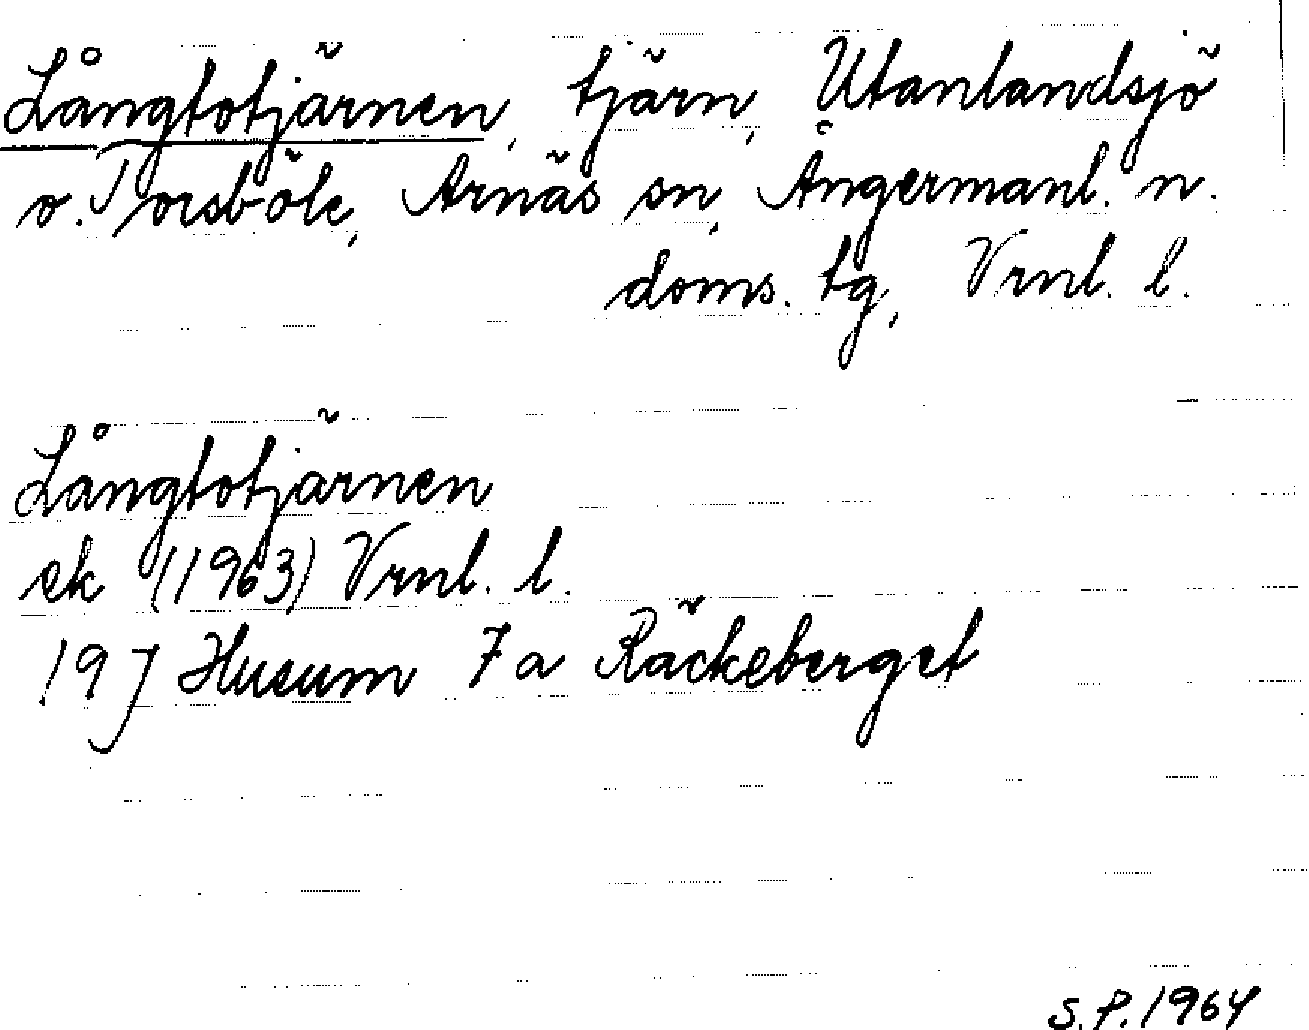 Långtotjärnen, tjärn, Utanlandsjö
o. Torsböle, Arnäs sn, Ångermanl. n.
doms. tg, Vrnl. l.
Långtotjärnen
ek (1963) Vrnl. l.
19 J Husum 7 a Räckeberget
S.P. 1964